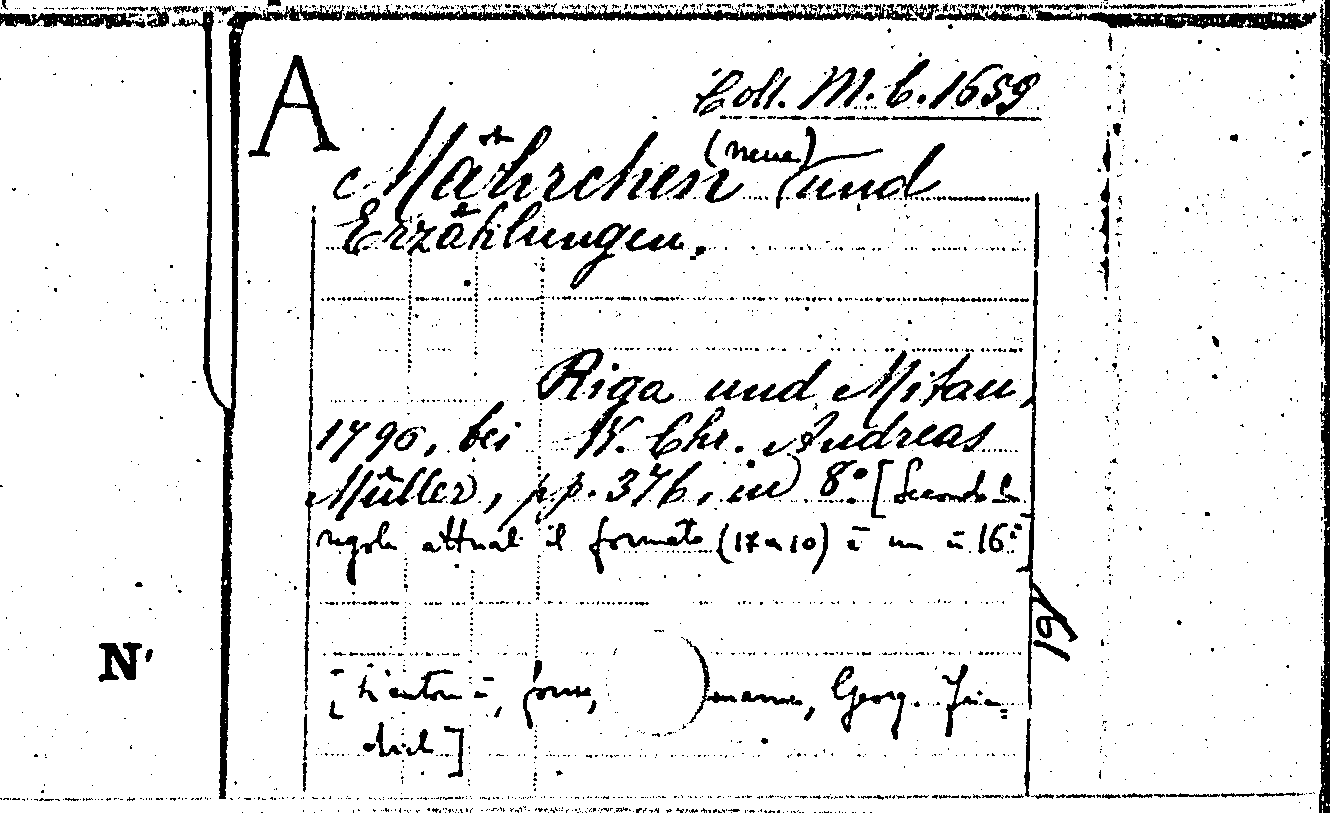 A
Coll. M. C. 1659
Mährchen (neue) und
Erzählungen.
Riga und Mitau,
1790, bei W. Chr. Andreas
Müller, pp. 376, in 8°. [Secondo la
regola attual il formato (17 a 10) è un in 16°.]
19
N'
[L'autor è, forse, Georg. Frie=
drich]